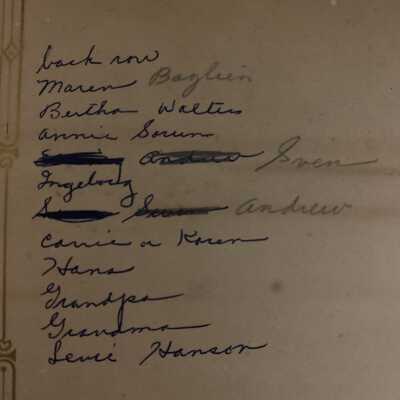 back row
Maren Baglien
Bertha Walters
Annie Sorum
Andrew Sven
Ingeborg
Sven Andrew
Carrie or Karen
Hans
Grandpa
Grandma
Levie Hanson